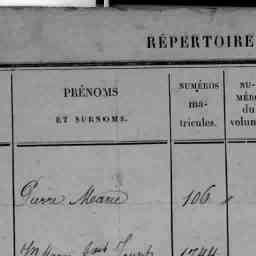 RÉPERTOIRE
PRÉNOMS
ET SURNOMS.
NUMÉROS
ma-
tricules.
NU-
MÉR
du
volum
Pierre Marie 106
1744